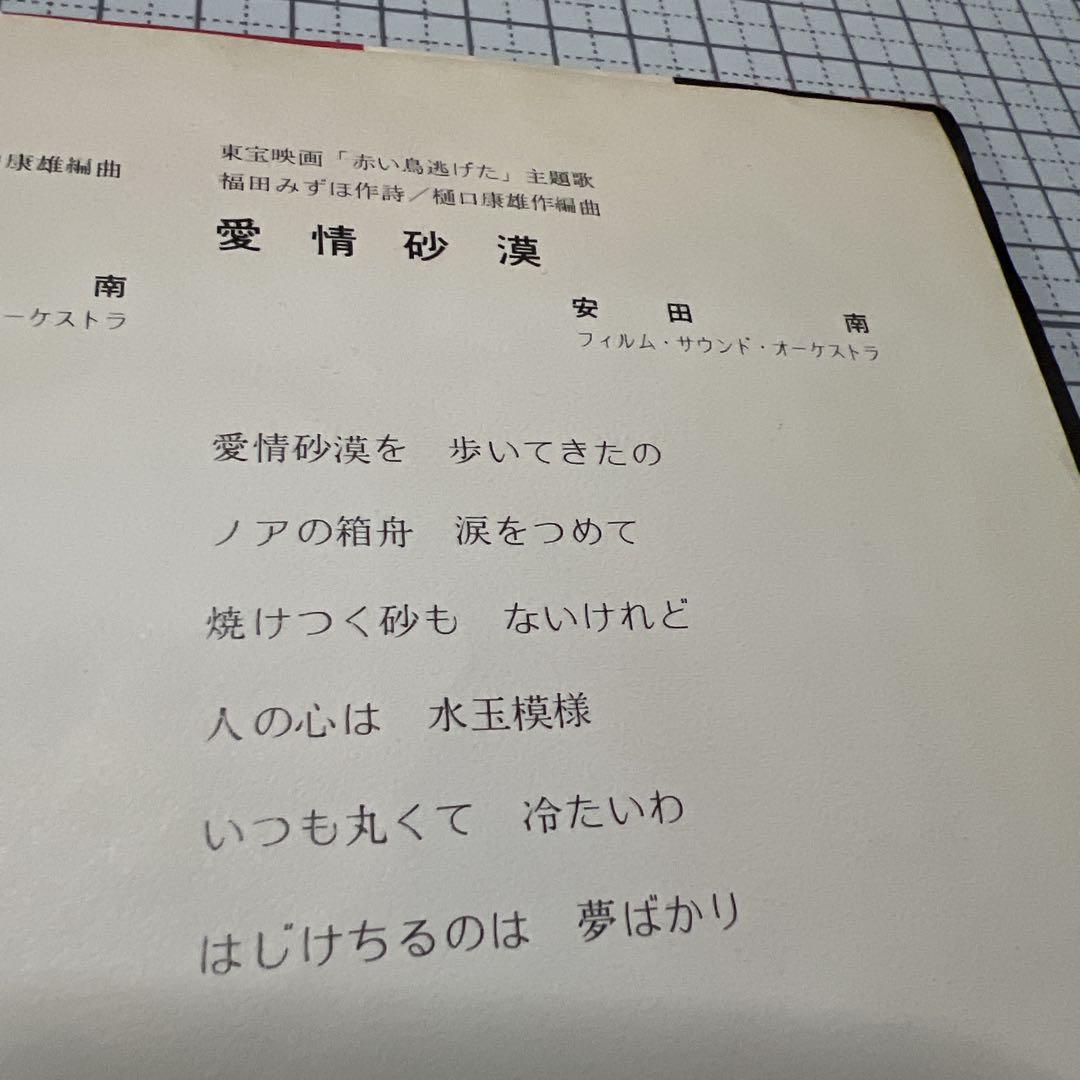 康雄編曲
南
ーケストラ
東宝映画「赤い鳥逃げた」主題歌
福田みずほ作詩/樋口康雄作編曲
愛情砂漠
安田南
フィルム・サウンド・オーケストラ
愛情砂漠を 歩いてきたの
ノアの箱舟 涙をつめて
焼けつく砂も ないけれど
人の心は 水玉模様
いつも丸くて 冷たいわ
はじけちるのは 夢ばかり